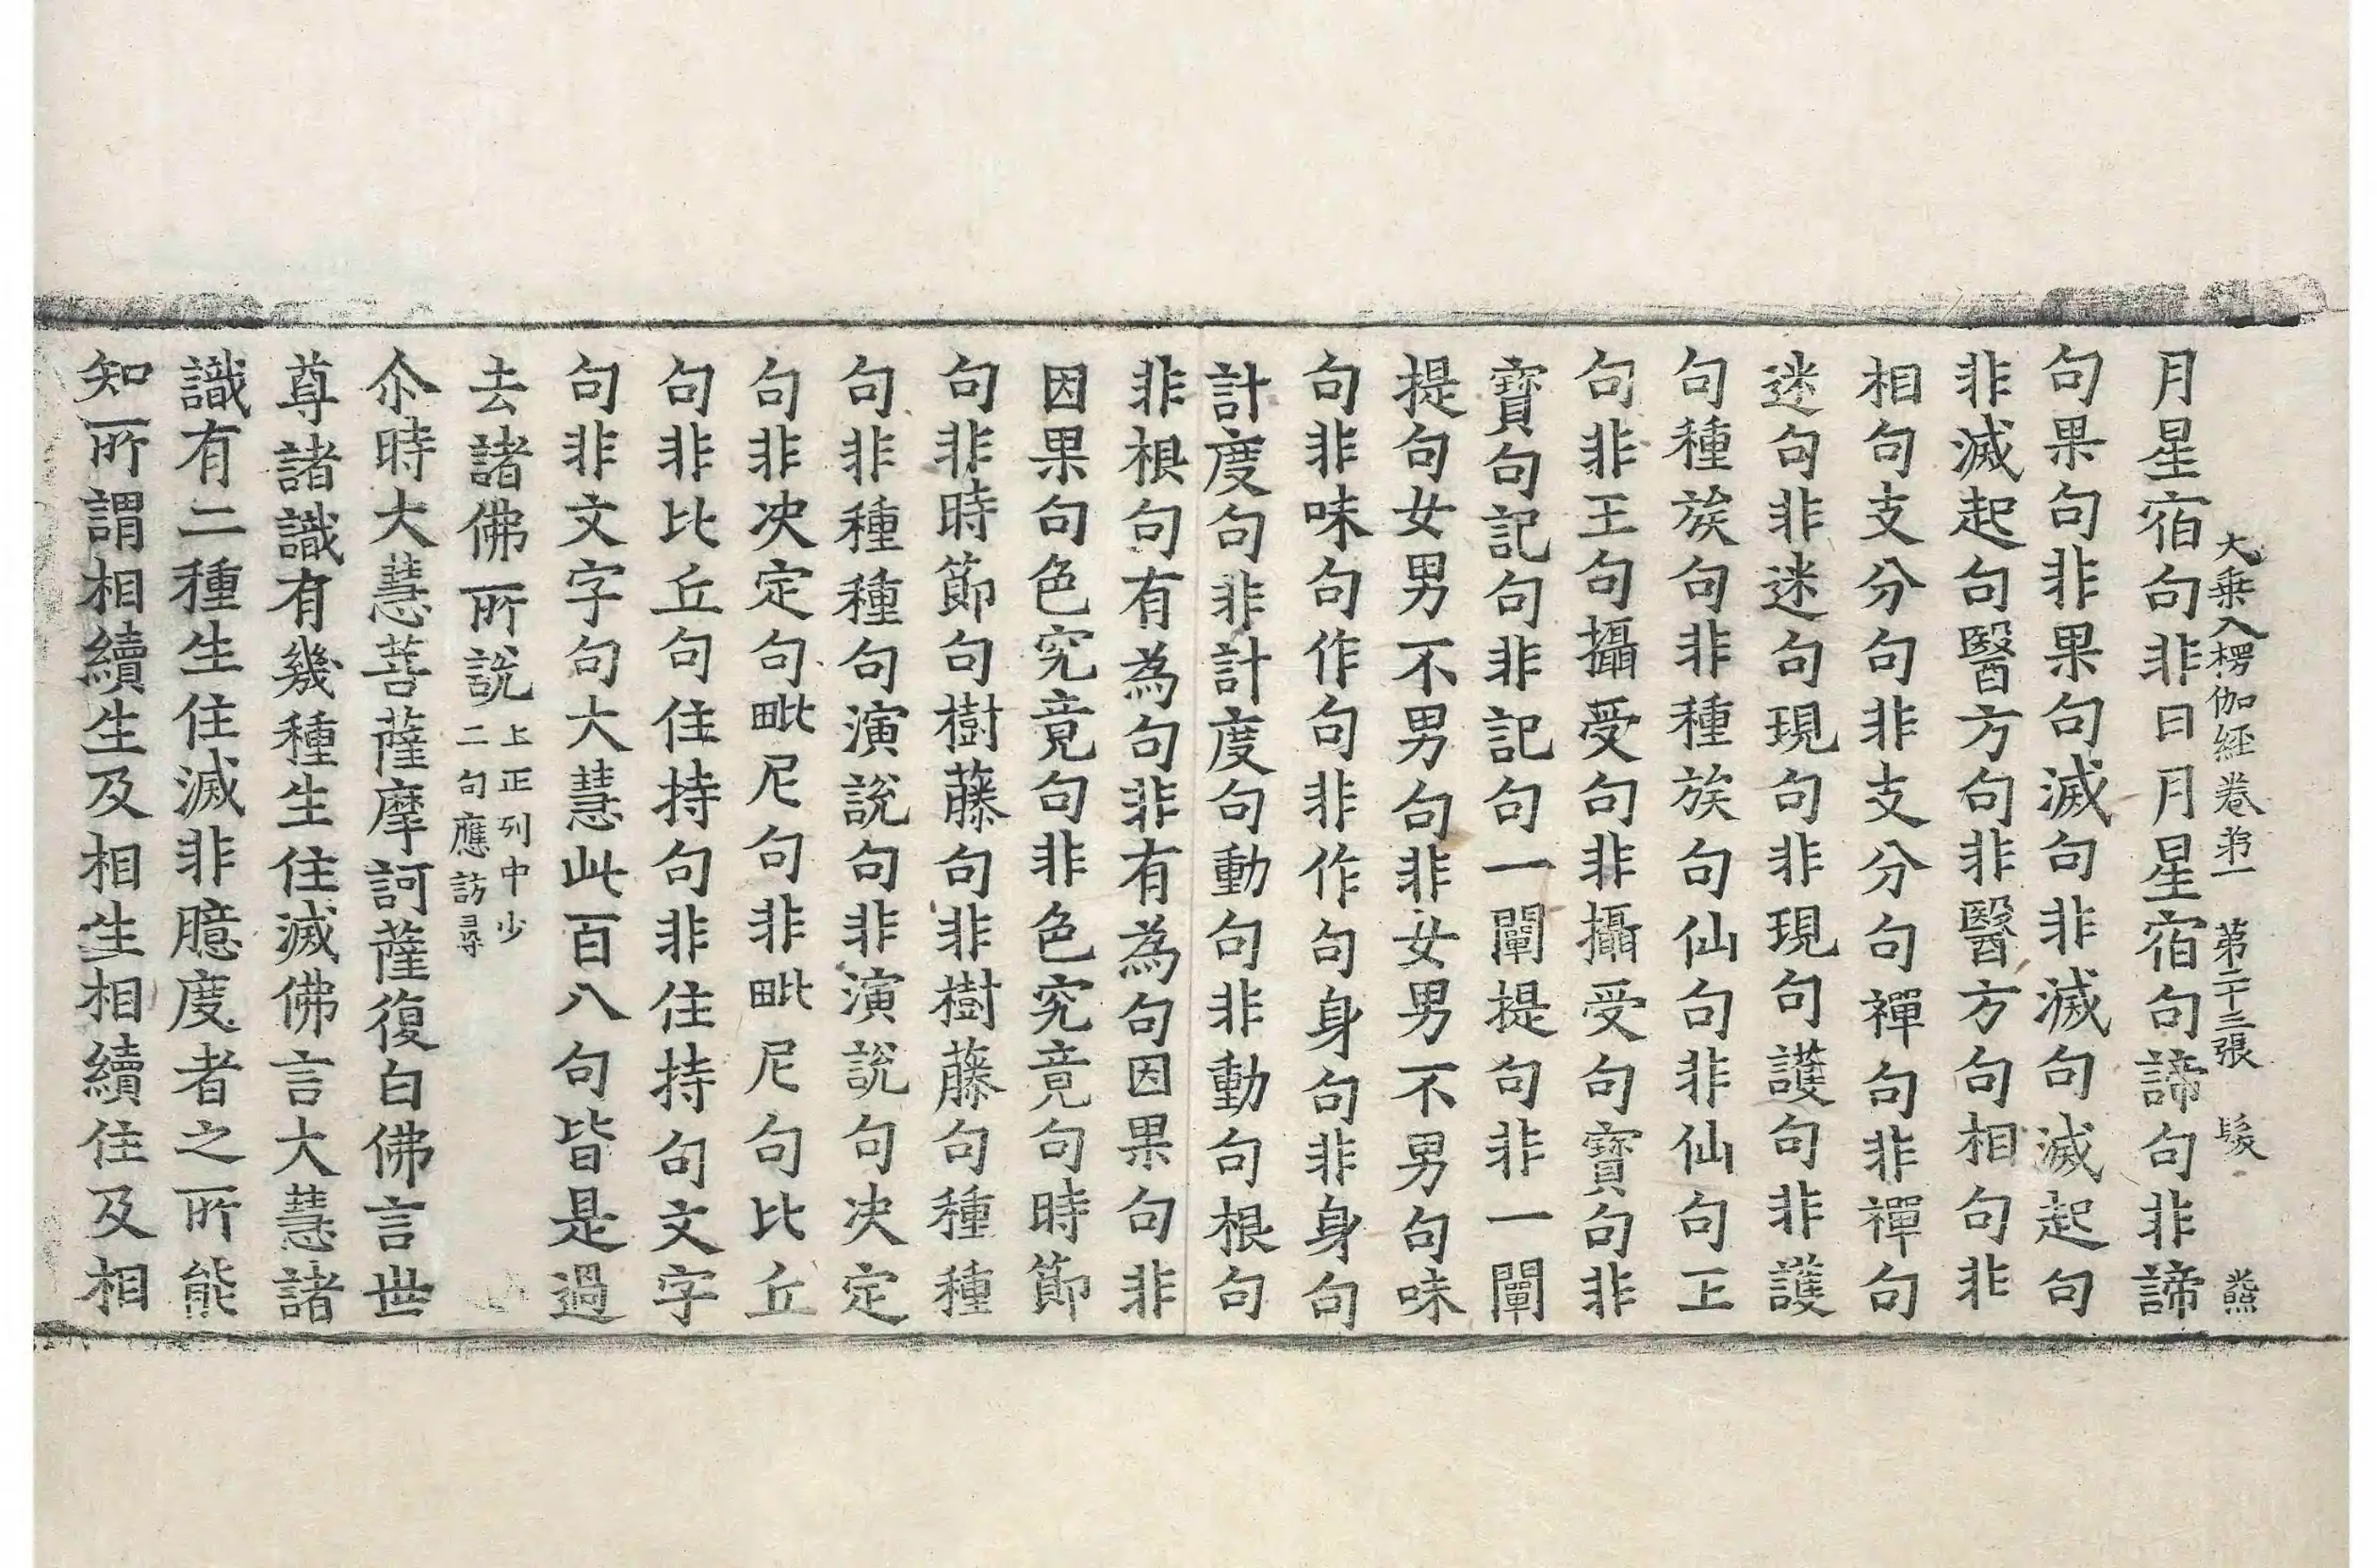 月星宿句非日月星宿句諦句非諦
大乗入楞伽経卷苐一 第二十三張 髮 燕
句果句非果句滅句非滅句滅起句
非滅起句醫方句非醫方句相句非
相句支分句非支分句禪句非禪句
迷句非迷句現句非現句護句非護
句種族句非種族句仙句非仙句王
句非王句攝受句非攝受句寶句非
寶句記句非記句一闡提句非一闡
提句女男不男句非女男不男句味
句非味句作句非作句身句非身句
計度句非計度句動句非動句根句
非根句有為句非有為句因果句非
因果句色究竟句非色究竟句時節
句非時節句樹藤句非樹藤句種種
句非種種句演說句非演說句決定
句非決定句毗尼句非毗尼句比丘
句非比丘句住持句非住持句文字
句非文字句大慧此百八句皆是過
去諸佛所說上正列中少二句應訪尋
尒時大慧菩薩摩訶薩復白佛言世
尊諸識有幾種生住滅佛言大慧諸
識有二種生住滅非臆度者之所能
知所謂相續生及相生相續住及相